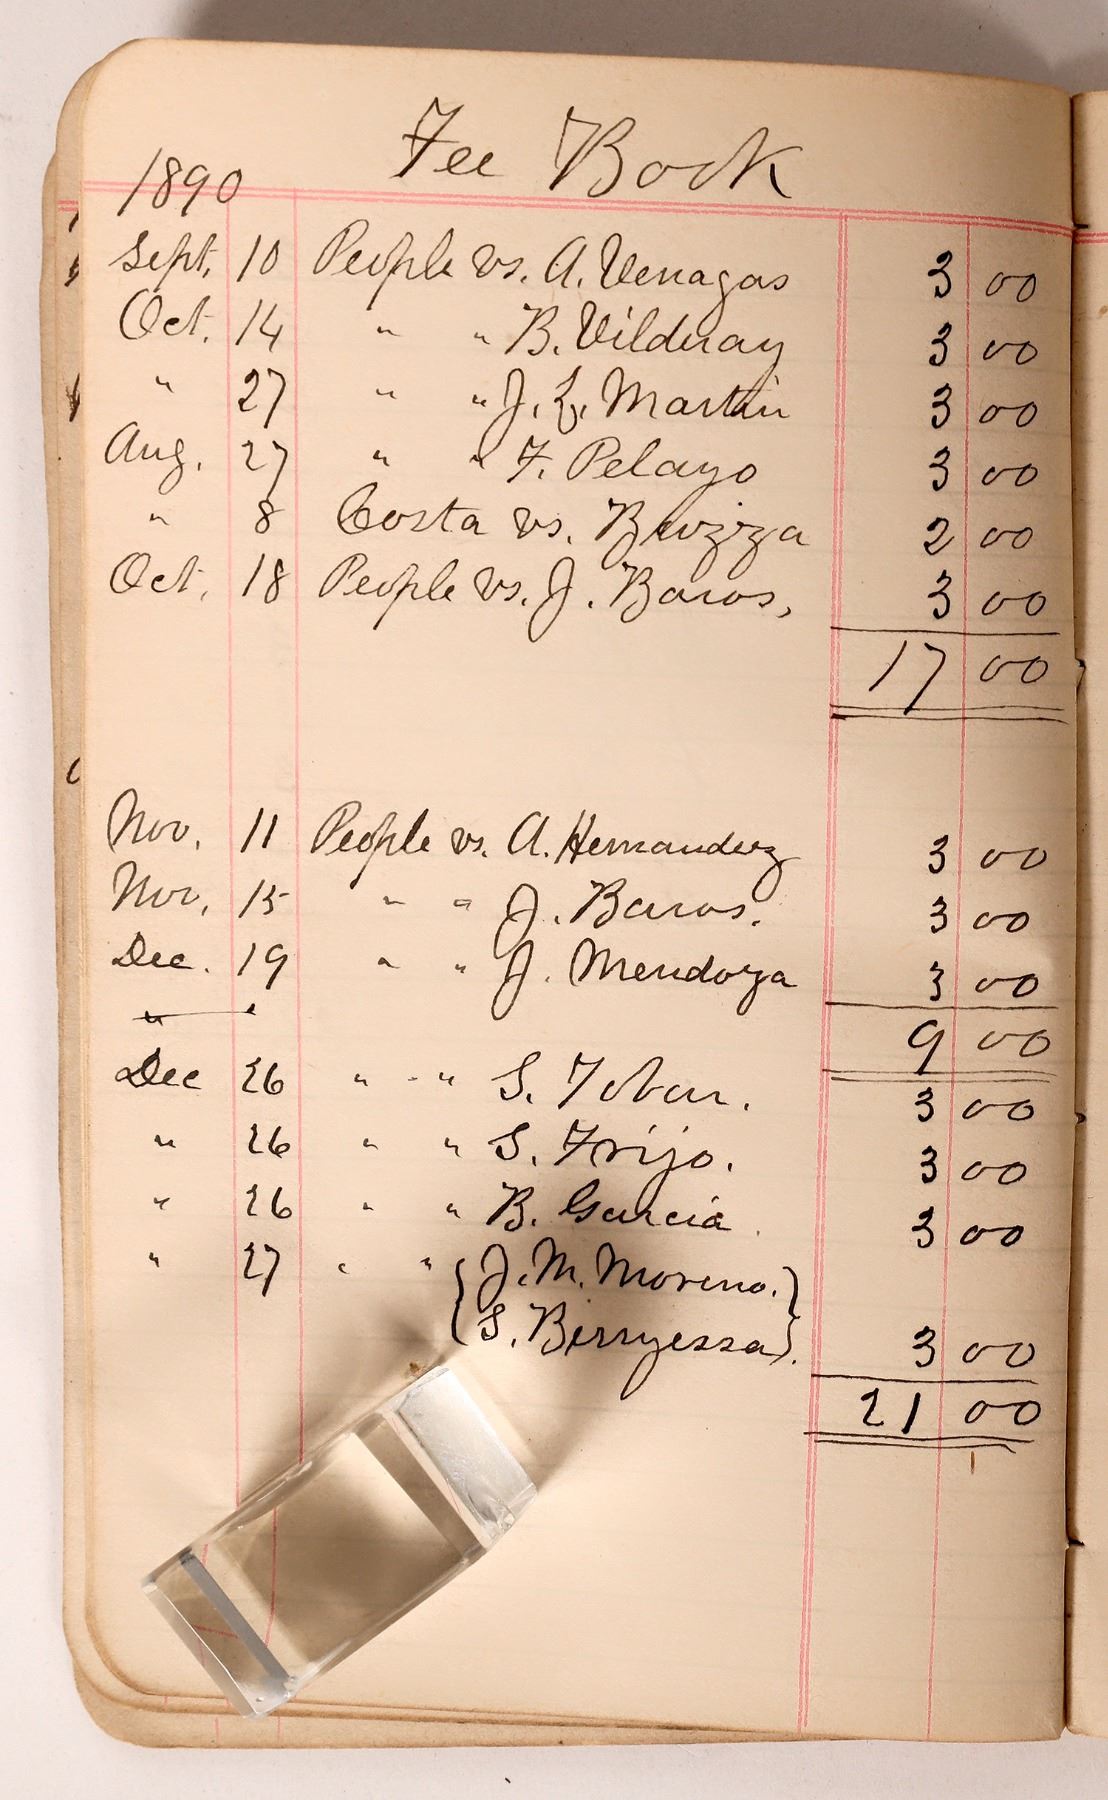 Fee Book
1890
Sept. 10 People vs. A. Venagas 3 00
Oct. 14 " " B. Vilduay 3 00
" 27 " " J. L. Martin 3 00
Aug. 27 " " F. Pelayo 3 00
" 8 Costa vs. Brizza 2 00
Oct. 18 People vs. J. Baros, 3 00
17 00
Nov. 11 People vs. A. Hernandez 3 00
Nov. 15 " " J. Baros. 3 00
Dec. 19 " " J. Mendoza 3 00
" "
9 00
Dec 26 " " S. Tobar. 3 00
" 26 " " S. Frijo. 3 00
" 26 " " B. Garcia. 3 00
" 27 " " { J. M. Moreno. }
{ S. Berryessa }. 3 00
21 00